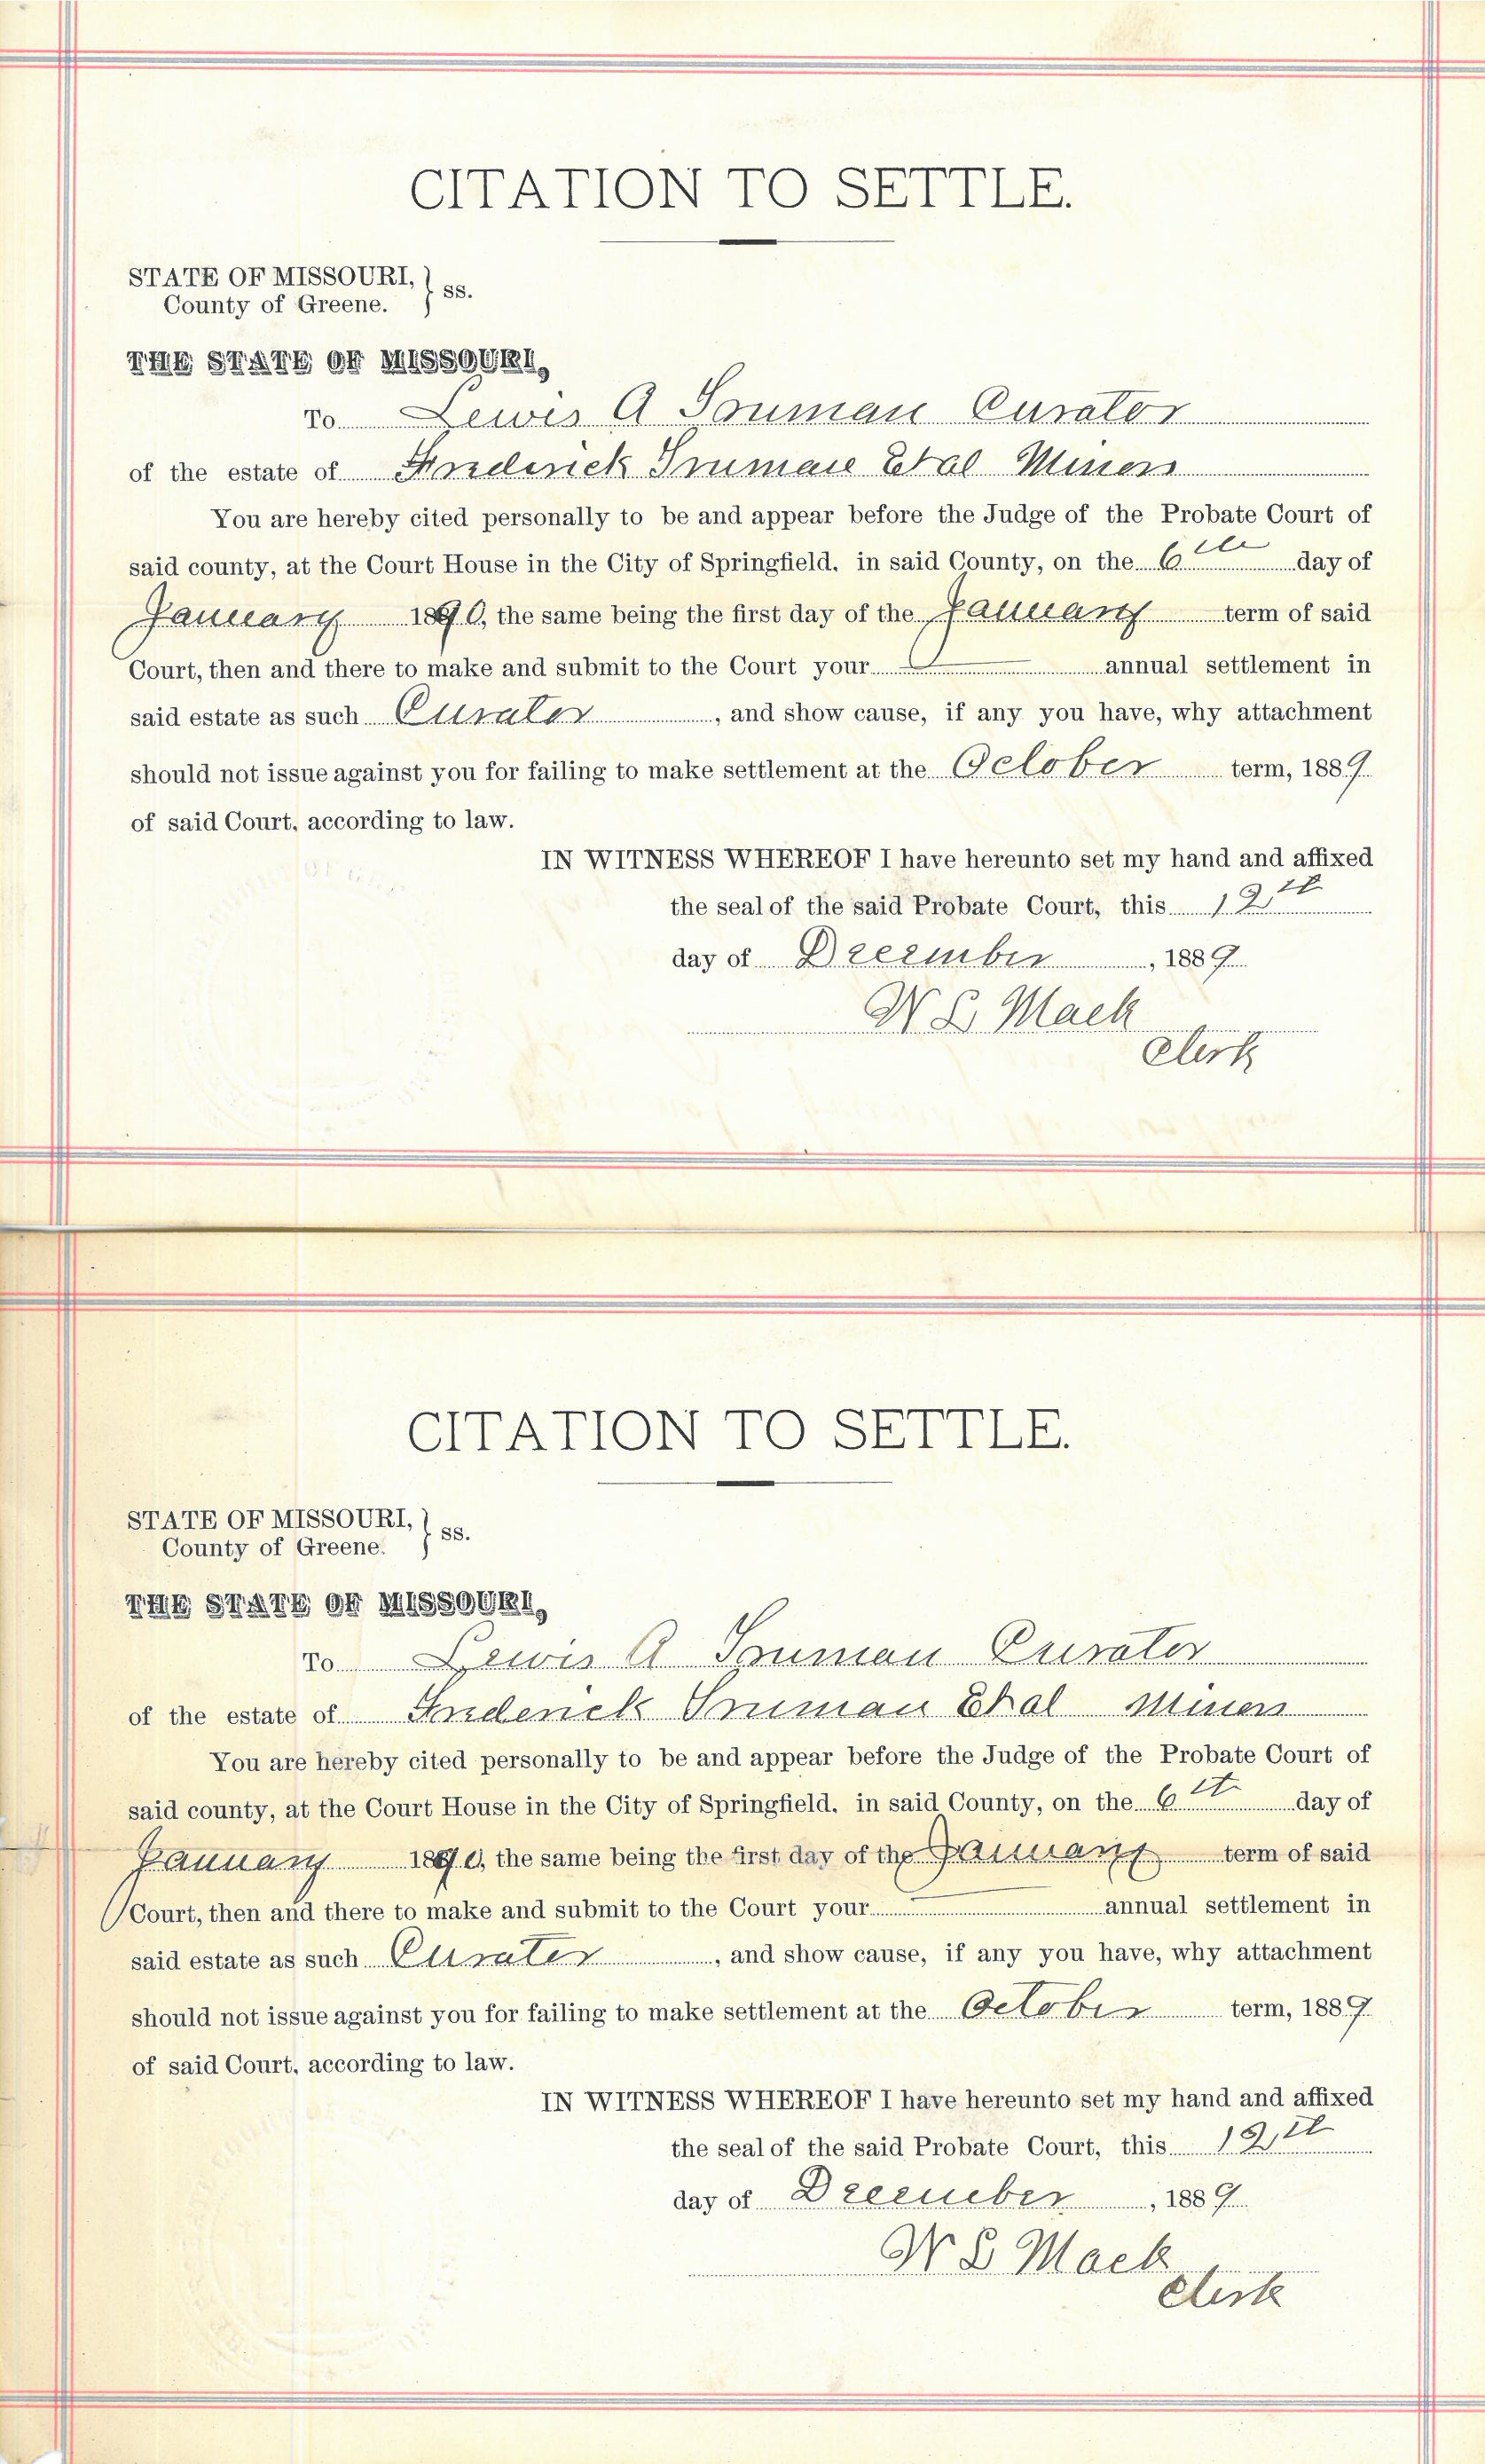 CITATION TO SETTLE.
STATE OF MISSOURI, } ss.
County of Greene.
THE STATE OF MISSOURI,
To Lewis A Truman Curator
of the estate of Frederick Truman Etal Minors
You are hereby cited personally to be and appear before the Judge of the Probate Court of
said county, at the Court House in the City of Springfield, in said County, on the 6th day of
January 1890, the same being the first day of the January term of said
Court, then and there to make and submit to the Court your annual settlement in
said estate as such Curator, and show cause, if any you have, why attachment
should not issue against you for failing to make settlement at the October term, 1889
of said Court, according to law.
IN WITNESS WHEREOF I have hereunto set my hand and affixed
the seal of the said Probate Court, this 19th
day of December, 1889
W L Mack
Clerk
CITATION TO SETTLE.
STATE OF MISSOURI, } ss.
County of Greene.
THE STATE OF MISSOURI,
To Lewis A Truman Curator
of the estate of Frederick Truman Etal Minors
You are hereby cited personally to be and appear before the Judge of the Probate Court of
said county, at the Court House in the City of Springfield, in said County, on the 6th day of
January 1890, the same being the first day of the January term of said
Court, then and there to make and submit to the Court your annual settlement in
said estate as such Curator, and show cause, if any you have, why attachment
should not issue against you for failing to make settlement at the October term, 1889
of said Court, according to law.
IN WITNESS WHEREOF I have hereunto set my hand and affixed
the seal of the said Probate Court, this 19th
day of December, 1889
W L Mack
Clerk